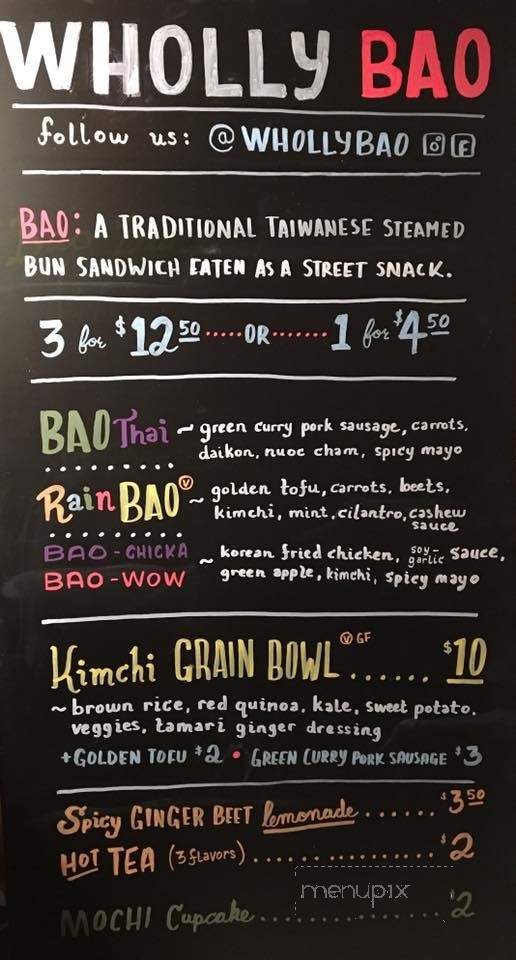 WHOLLY BAO
follow us: @WHOLLYBAO
BAO: A TRADITIONAL TAIWANESE STEAMED
BUN SANDWICH EATEN AS A STREET SNACK.
3 for $12.50 ..... OR ....... 1 for $4.50
BAO Thai ~ green curry pork sausage, carrots,
daikon, nuoc cham, spicy mayo
RainBAO Ⓥ ~ golden tofu, carrots, beets,
kimchi, mint, cilantro, cashew
sauce
BAO-CHICKA ~ korean fried chicken, soy-garlic sauce,
BAO-WOW green apple, kimchi, spicy mayo
Kimchi GRAIN BOWL Ⓥ GF ...... $10
~ brown rice, red quinoa, kale, sweet potato,
veggies, tamari ginger dressing
+GOLDEN TOFU $2 • GREEN CURRY PORK SAUSAGE $3
Spicy GINGER BEET lemonade ...... $3.50
HOT TEA (3 flavors) ................ $2
menupix
MOCHI Cupcake ................ $2